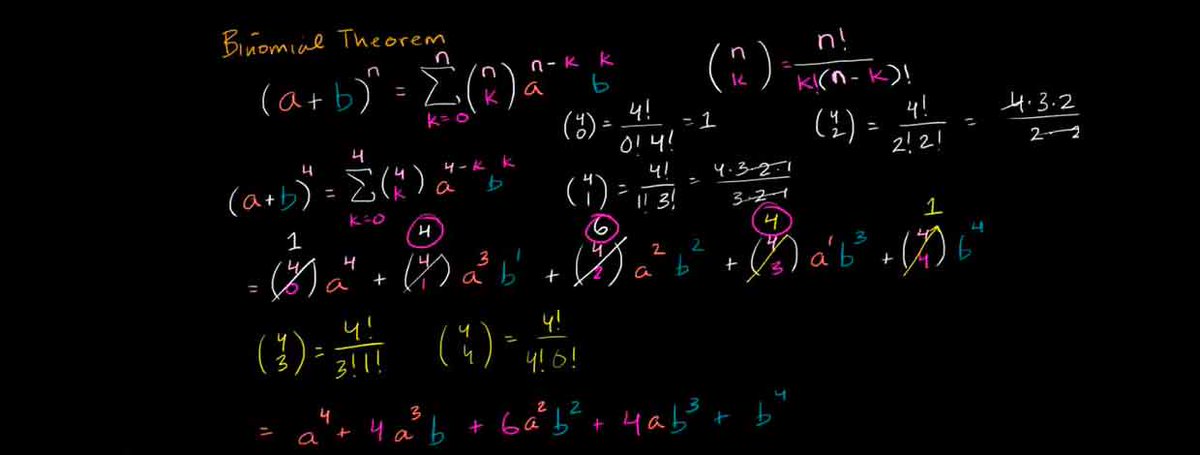 Binomial Theorem
(a + b)^n = Σ_{k=0}^{n} (n k) a^{n-k} b^k
(n k) = n! / k!(n - k)!
(4 0) = 4! / 0! 4! = 1
(4 2) = 4! / 2! 2! = 4·3·2 / 2·2
(a+b)^4 = Σ_{k=0}^{4} (4 k) a^{4-k} b^k
(4 1) = 4! / 1! 3! = 4·3·2·1 / 3·2·1
1 4 6 4 1
= (4 0) a^4 + (4 1) a^3 b^1 + (4 2) a^2 b^2 + (4 3) a^1 b^3 + (4 4) b^4
(4 3) = 4! / 3! 1!
(4 4) = 4! / 4! 0!
= a^4 + 4a^3 b + 6a^2 b^2 + 4ab^3 + b^4